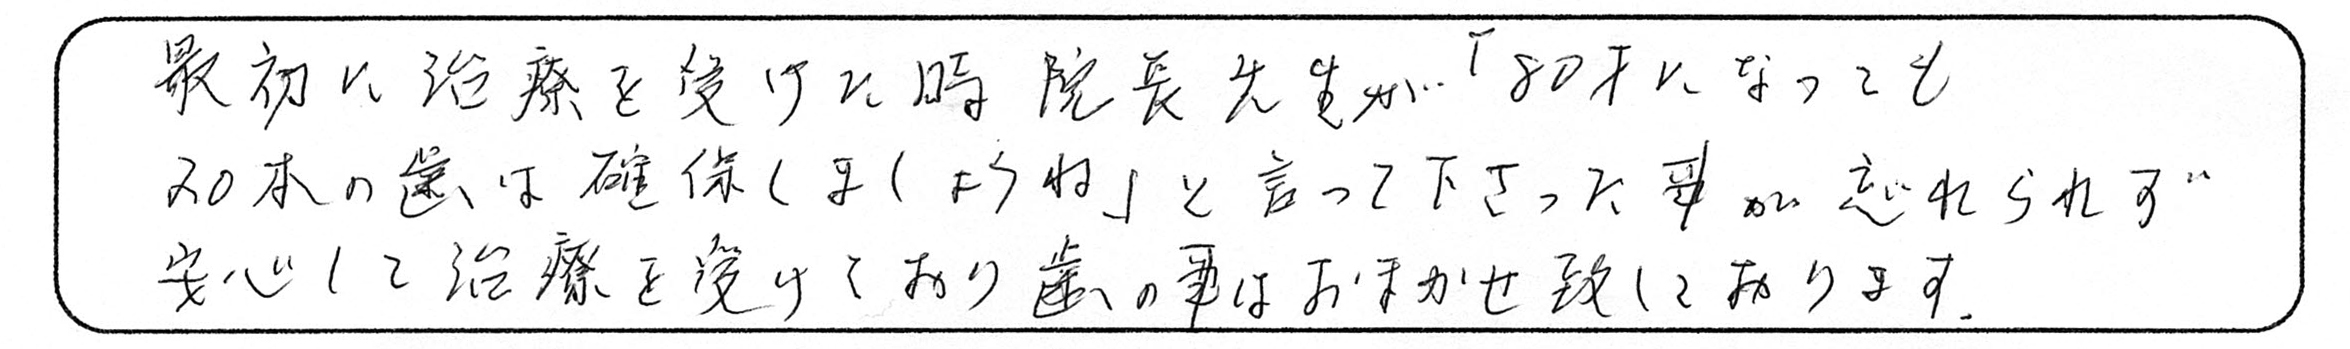 最初に治療を受けた時院長先生が「80才になっても
20本の歯は確保しましょうね」と言って下さった事が忘れられず
安心して治療を受けており歯の事はおまかせ致しております.